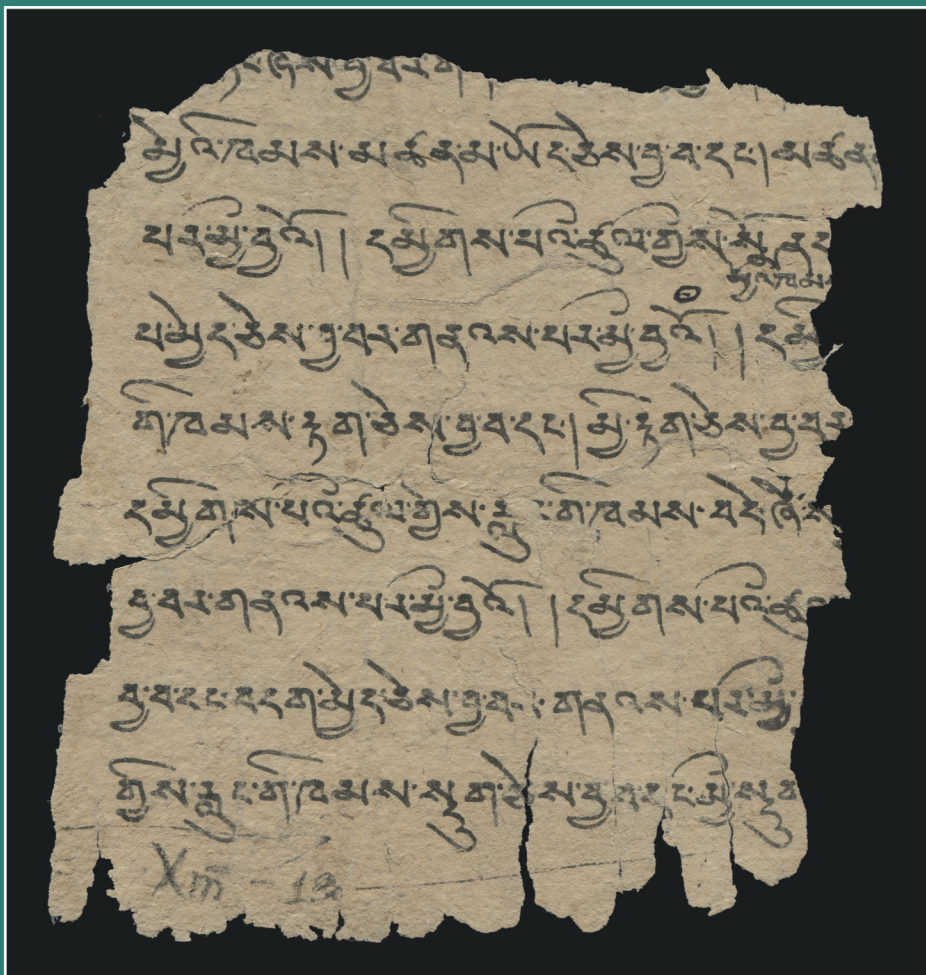 ཞེས་བྱ་བར་ག
མྱེའི་ཁམས་མཚན་མ་ཡོད་ཅེས་བྱ་བ་དང་། མཚན
པར་མྱི་བྱའོ། ། དམྱིགས་པའི་ཚུལ་གྱིས་སྨོན་པ
མྱེའི་ཁམས
པ་མྱེད་ཅེས་བྱ་བར་གནས་པར་མྱི་བྱའོ། ། དམྱི
གི་ཁམས་རྟག་ཅེས་བྱ་བ་དང་། མྱི་རྟག་ཅེས་བྱ་བར
དམྱིགས་པའི་ཚུལ་གྱིས་རླུང་གི་ཁམས་བདེ་ཞེས
བྱ་བར་གནས་པར་མྱི་བྱའོ། ། དམྱིགས་པའི་ཚུ
བྱ་བ་དང་བདག་མྱེད་ཅེས་བྱ་བར་གནས་པར་མྱི
གྱིས་རླུང་གི་ཁམས་སྡུག་ཅེས་བྱ་བ་དང་མྱི་སྡུག
XIII - 13